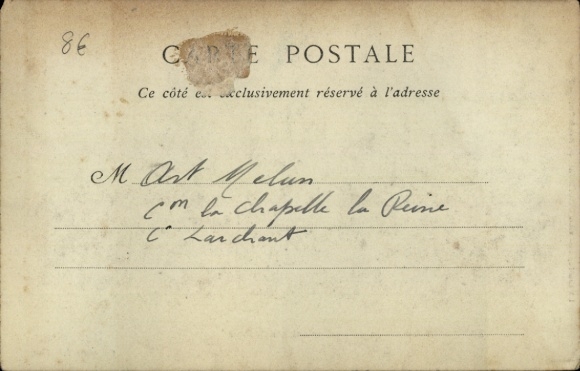 8€
CARTE POSTALE
Ce côté est exclusivement réservé à l'adresse
M Art Melun
Con la Chapelle la Reine
Ce Larchant